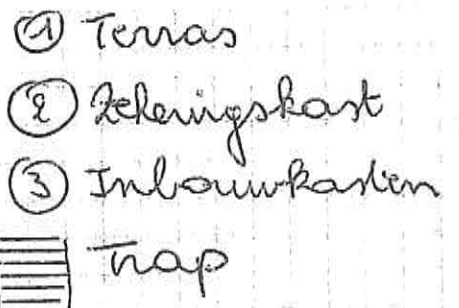 ① Terras
② Zekeringskast
③ Inbouwkasten
Trap